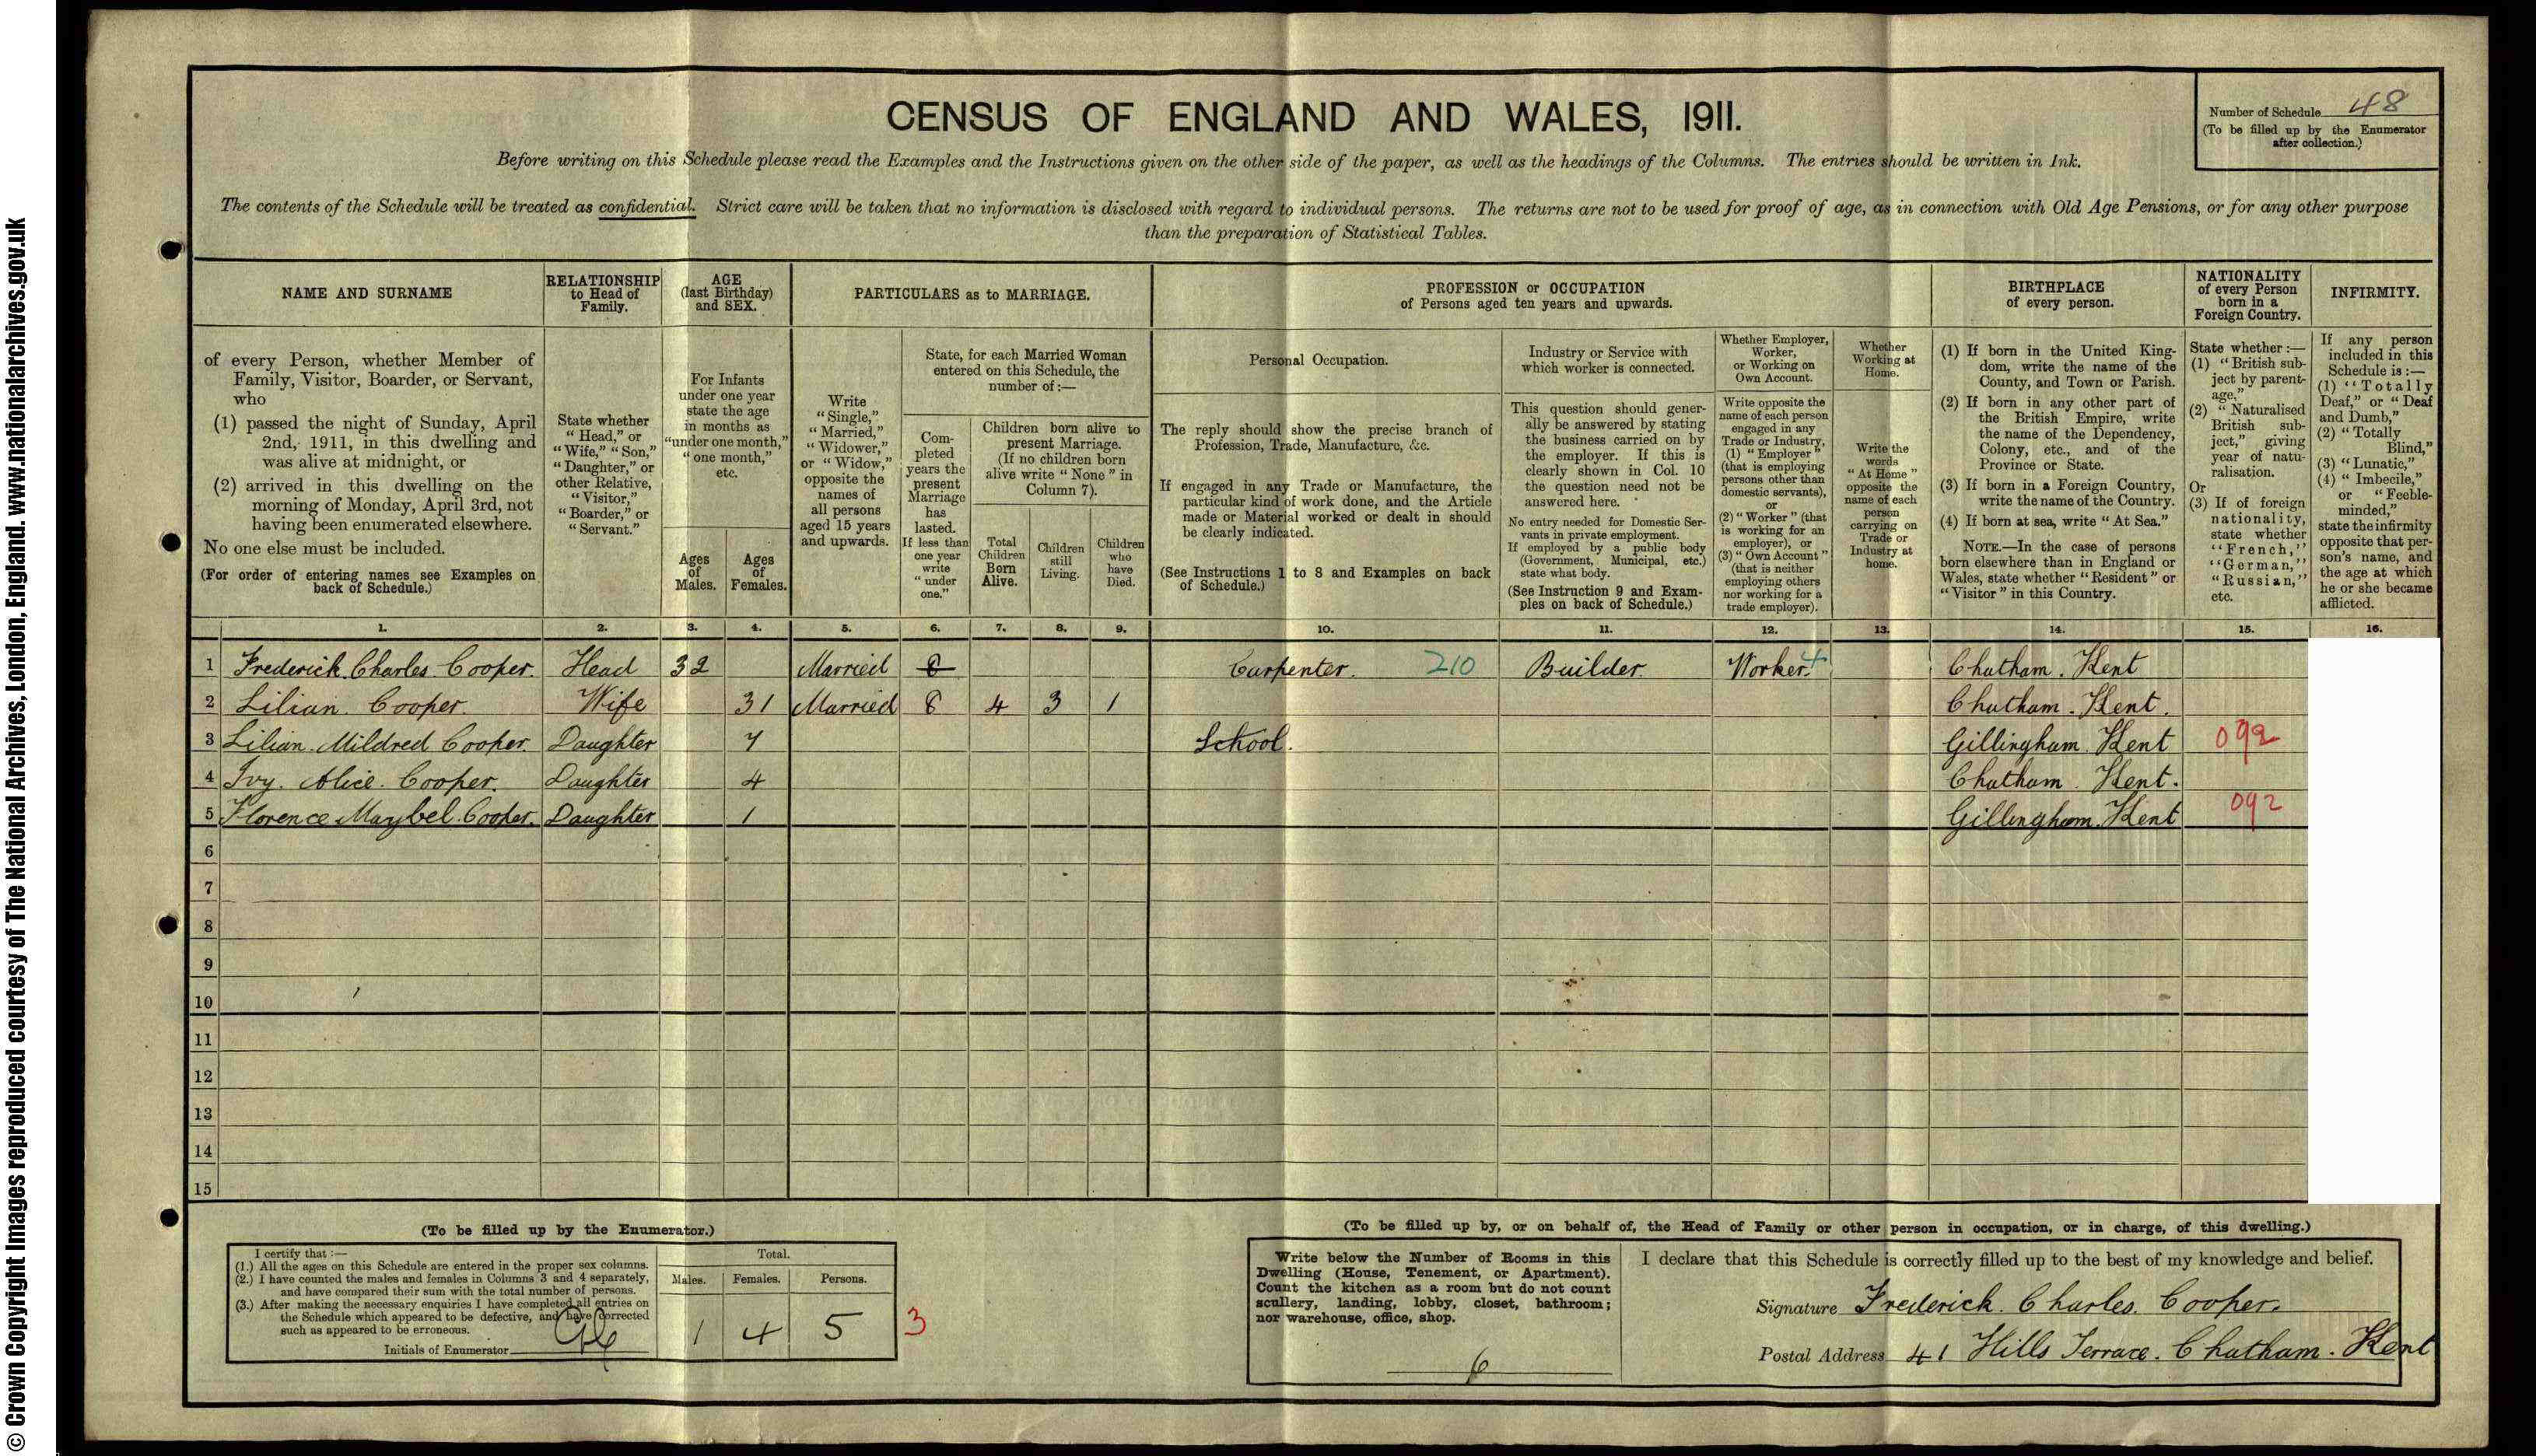 © Crown Copyright Images reproduced courtesy of The National Archives, London, England. www.nationalarchives.gov.uk
CENSUS OF ENGLAND AND WALES, 1911.
Number of Schedule 48
(To be filled up by the Enumerator
after collection.)
Before writing on this Schedule please read the Examples and the Instructions given on the other side of the paper, as well as the headings of the Columns. The entries should be written in Ink.
The contents of the Schedule will be treated as confidential. Strict care will be taken that no information is disclosed with regard to individual persons. The returns are not to be used for proof of age, as in connection with Old Age Pensions, or for any other purpose
than the preparation of Statistical Tables.
NAME AND SURNAME
of every Person, whether Member of
Family, Visitor, Boarder, or Servant,
who
(1) passed the night of Sunday, April
2nd, 1911, in this dwelling and
was alive at midnight, or
(2) arrived in this dwelling on the
morning of Monday, April 3rd, not
having been enumerated elsewhere.
No one else must be included.
(For order of entering names see Examples on
back of Schedule.)
RELATIONSHIP
to Head of
Family.
State whether
"Head," or
"Wife," "Son,"
"Daughter," or
other Relative,
"Visitor,"
"Boarder," or
"Servant."
AGE
(last Birthday)
and SEX.
For Infants
under one year
state the age
in months as
"under one month,"
"one month,"
etc.
Ages
of
Males.
Ages
of
Females.
PARTICULARS as to MARRIAGE.
Write
"Single,"
"Married,"
"Widower,"
or "Widow,"
opposite the
names of
all persons
aged 15 years
and upwards.
State, for each Married Woman
entered on this Schedule, the
number of:—
Com-
pleted
years the
present
Marriage
has
lasted.
If less than
one year
write
"under
one."
Children born alive to
present Marriage.
(If no children born
alive write "None" in
Column 7).
Total
Children
Born
Alive.
Children
still
Living.
Children
who
have
Died.
PROFESSION or OCCUPATION
of Persons aged ten years and upwards.
Personal Occupation.
The reply should show the precise branch of
Profession, Trade, Manufacture, &c.
If engaged in any Trade or Manufacture, the
particular kind of work done, and the Article
made or Material worked or dealt in should
be clearly indicated.
(See Instructions 1 to 8 and Examples on back
of Schedule.)
Industry or Service with
which worker is connected.
This question should gener-
ally be answered by stating
the business carried on by
the employer. If this is
clearly shown in Col. 10
the question need not be
answered here.
No entry needed for Domestic Ser-
vants in private employment.
If employed by a public body
(Government, Municipal, etc.)
state what body.
(See Instruction 9 and Exam-
ples on back of Schedule.)
Whether Employer,
Worker,
or Working on
Own Account.
Write opposite the
name of each person
engaged in any
Trade or Industry,
(1) "Employer"
(that is employing
persons other than
domestic servants),
or
(2) "Worker" (that
is working for an
employer), or
(3) "Own Account"
(that is neither
employing others
nor working for a
trade employer).
Whether
Working at
Home.
Write the
words
"At Home"
opposite the
name of each
person
carrying on
Trade or
Industry at
home.
BIRTHPLACE
of every person.
(1) If born in the United King-
dom, write the name of the
County, and Town or Parish.
(2) If born in any other part of
the British Empire, write
the name of the Dependency,
Colony, etc., and of the
Province or State.
(3) If born in a Foreign Country,
write the name of the Country.
(4) If born at sea, write "At Sea."
NOTE.—In the case of persons
born elsewhere than in England or
Wales, state whether "Resident" or
"Visitor" in this Country.
NATIONALITY
of every Person
born in a
Foreign Country.
State whether :—
(1) "British sub-
ject by parent-
age,"
(2) "Naturalised
British sub-
ject," giving
year of natu-
ralisation.
Or
(3) If of foreign
nationality,
state whether
"French,"
"German,"
"Russian,"
etc.
INFIRMITY.
If any person
included in this
Schedule is :—
(1) "Totally
Deaf," or "Deaf
and Dumb,"
(2) "Totally
Blind,"
(3) "Lunatic,"
(4) "Imbecile,"
or "Feeble-
minded,"
state the infirmity
opposite that per-
son's name, and
the age at which
he or she became
afflicted.
1. 2. 3. 4. 5. 6. 7. 8. 9. 10. 11. 12. 13. 14. 15. 16.
1 Frederick Charles Cooper. Head 32 Married 8 Carpenter. 210 Builder. Worker. 4 Chatham. Kent
2 Lilian Cooper. Wife 31 Married 8 4 3 1 Chatham. Kent.
3 Lilian Mildred Cooper. Daughter 7 School. Gillingham. Kent 092
4 Ivy Alice Cooper. Daughter 4 Chatham. Kent.
5 Florence Maybel Cooper. Daughter 1 Gillingham. Kent 092
6
7
8
9
10
11
12
13
14
15
(To be filled up by the Enumerator.)
I certify that :—
(1.) All the ages on this Schedule are entered in the proper sex columns.
(2.) I have counted the males and females in Columns 3 and 4 separately,
and have compared their sum with the total number of persons.
(3.) After making the necessary enquiries I have completed all entries on
the Schedule which appeared to be defective, and have corrected
such as appeared to be erroneous.
Initials of Enumerator
Total.
Males. Females. Persons.
1 4 5 3
(To be filled up by, or on behalf of, the Head of Family or other person in occupation, or in charge, of this dwelling.)
Write below the Number of Rooms in this
Dwelling (House, Tenement, or Apartment).
Count the kitchen as a room but do not count
scullery, landing, lobby, closet, bathroom;
nor warehouse, office, shop.
6
I declare that this Schedule is correctly filled up to the best of my knowledge and belief.
Signature Frederick Charles Cooper.
Postal Address 41 Hills Terrace. Chatham. Kent